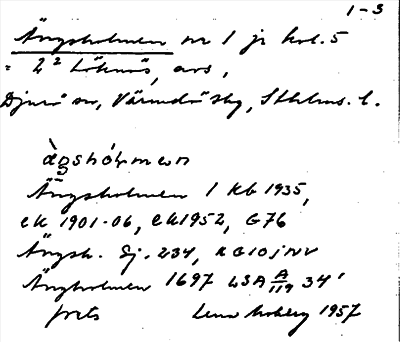 1-3
Ängsholmen nr 1 jr kol. 5
= 2² Löknäs, avs,
Djurö sn, Värmdö skg, Sthlms. l.
ängshólmen
Ängsholmen 1 Kb 1935,
ek 1901-06, ek 1952, G76
Ängsh. Sj. 234, RG10jNV
Ängholmen 1697 LSA A/119 34'
forts Lena Moberg 1957